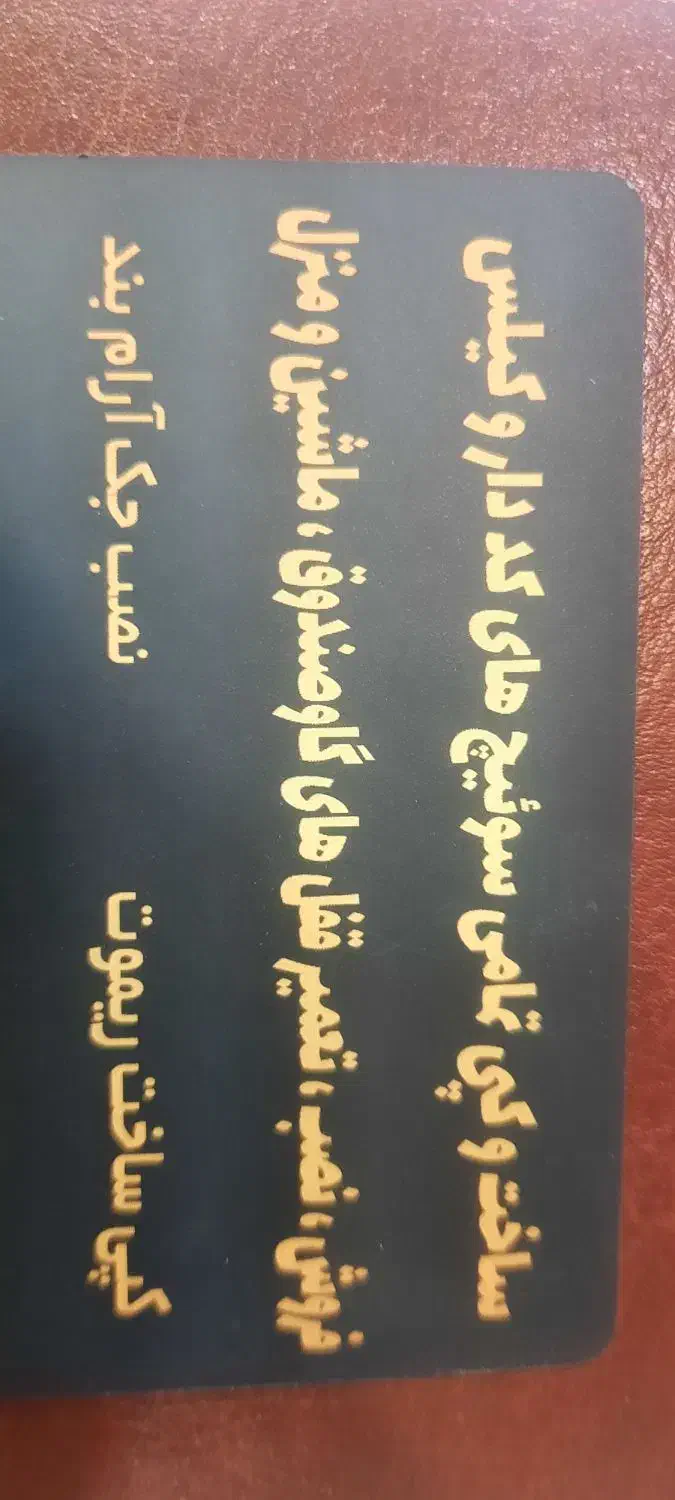 ساخت و کپی تمامی سوئیچ های کد دار و کیلس
فروش ، نصب ، تعمیر قفل های گاوصندوق ، ماشین و منزل
کپی ساخت ریموت نصب جک آرام بند